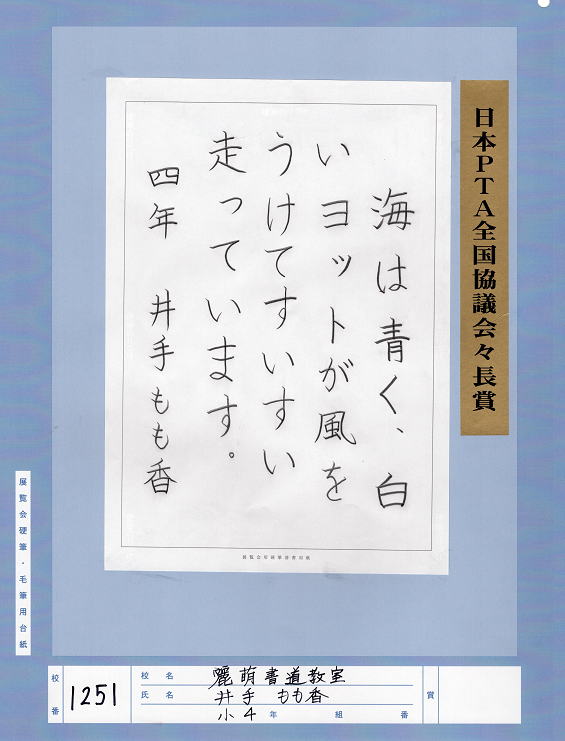 日本PTA全国協議会々長賞
海は青く、白
いヨットが風を
うけてすいすい
走っています。
四年 井手もも香
展覧会用硬筆書写用紙
展覧会硬筆・毛筆用台紙
校番 1251
校名 麗萌書道教室
氏名 井手 もも香
小4年 組 番
賞